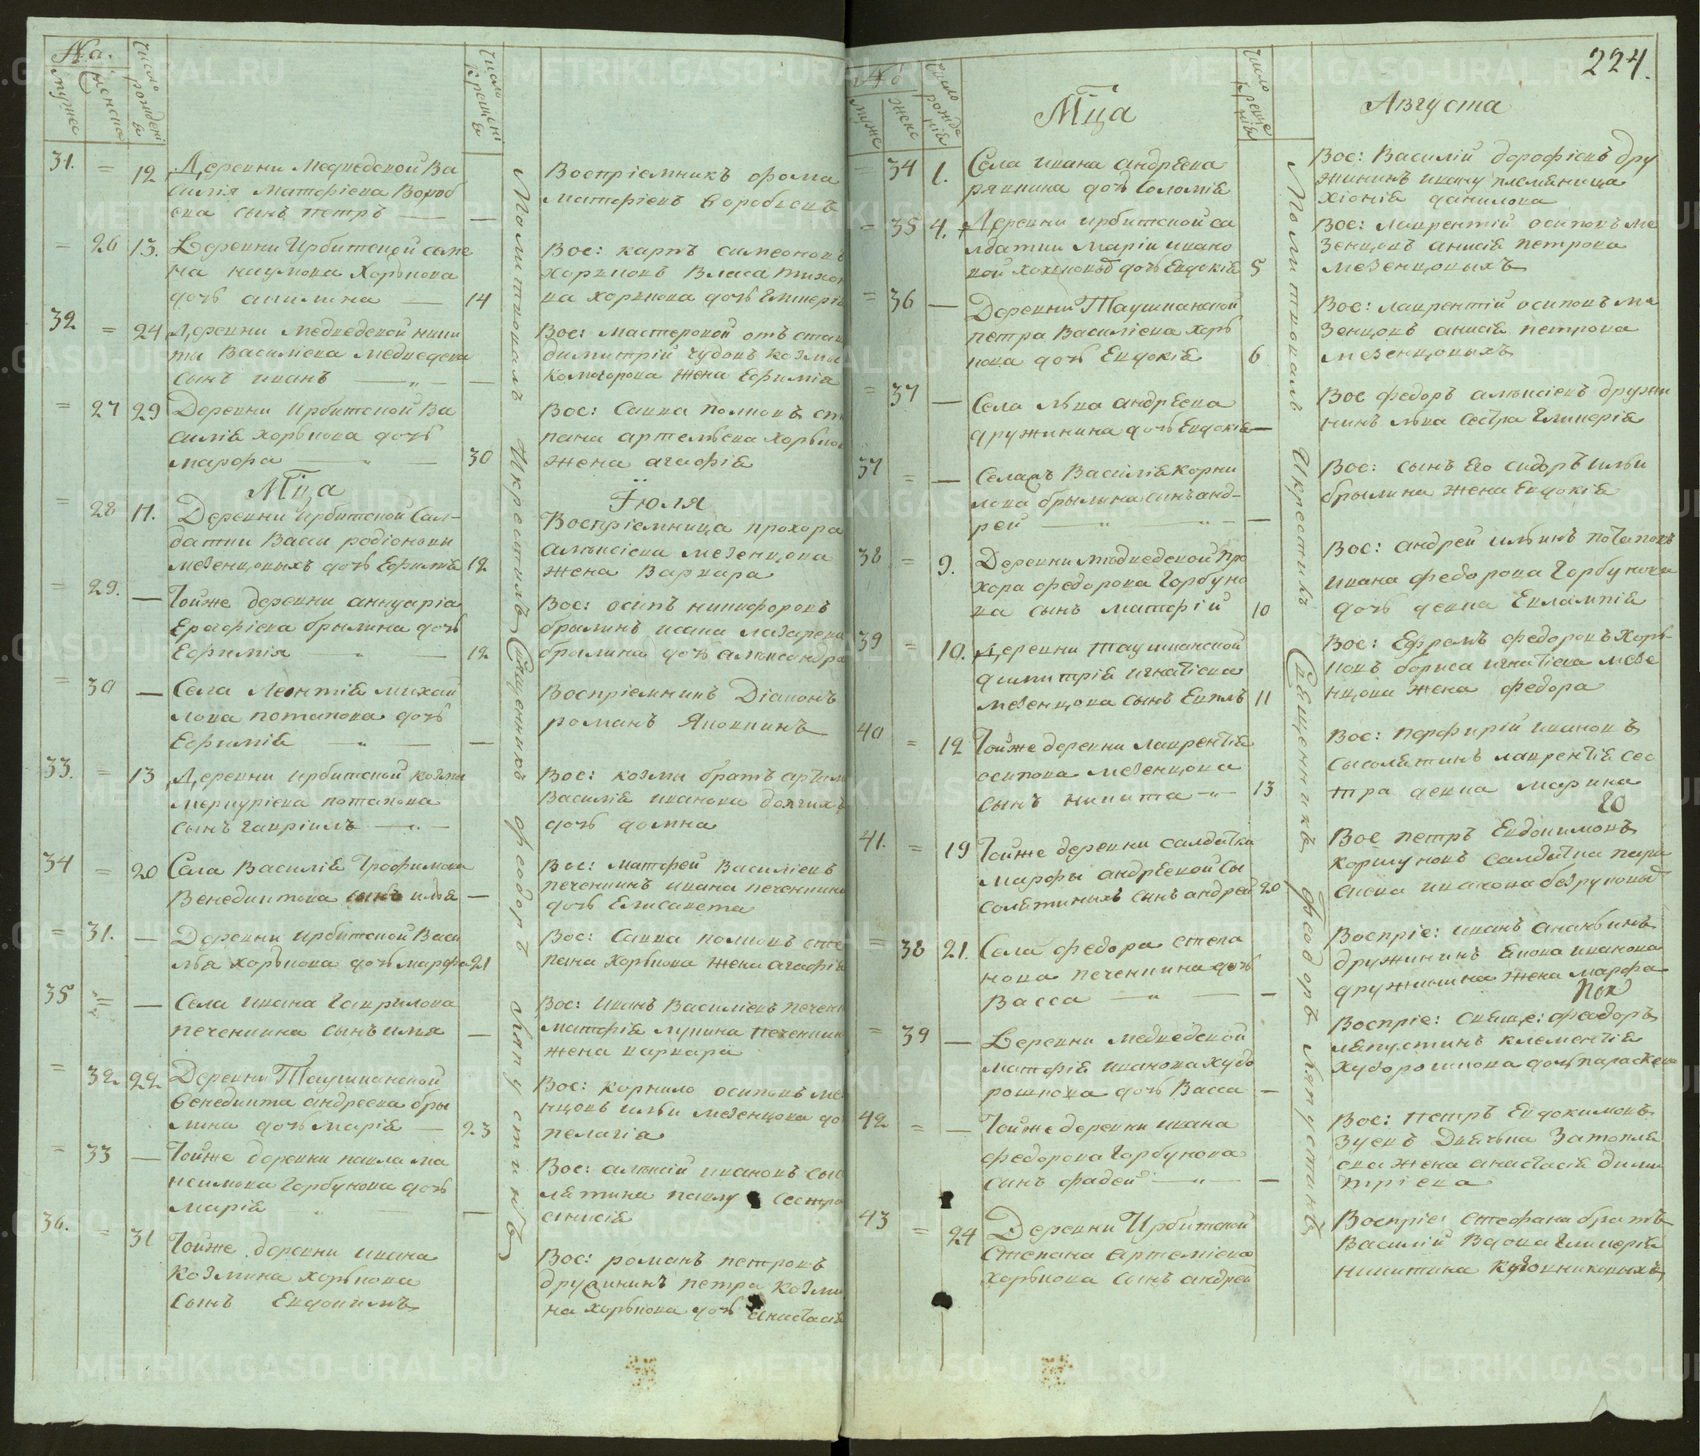 №
муже
женска
число рожденія
число крещенія
31. = 12
Деревни Медведевой Ва
силія Матфіева Вороб
ева сынъ петръ — —
Воспріемникъ фома
матфіевъ воробьевъ
= 26 13.
Деревни Ирбитской симе
на наумова Хорькова
дочь акилина — 14
Вос: карпъ симеоновъ
хорьковъ Власа тихо
ва хорькова дочь Гликерія
32 = 24
Деревни Медведевой ники
ты Василіева Медведева
сынъ иванъ — „ — —
Вос: мастеровой отъ став
димитрій чудовъ козмы
комогорова жена Ефимія
= 27 29
Деревни Ирбитской Ва
силія хорькова дочь
марфа — „ — 30
Вос: Савва поликовъ сте
пана артемьева хорько
жена агафія
Мца
Іюля
= 28 11.
Деревни ирбитской Сал-
датки Вассы родіоновы
мезенцовыхъ дочь Ефимія 12
Воспріемница прохора
алексіева мезенцова
жена Варвара
= 29. —
Тойже деревни аннуарія
Ерофіева брылина дочь
Ефимія — „ — 12
Вос: осипъ никифоровъ
брылинъ ивана лазарева
брылина дочь александра
= 30 —
Села Леонтія михай
лова потапова дочь
Ефимія — „ — —
Воспріемникъ Діаконъ
романъ Яковкинъ
33. = 13
Деревни ирбитской козмы
меркуріева потапова
сынъ гавріилъ — „ —
Вос: козмы братъ артем
Василія иванова долгихъ
дочь домна
34 = 20
Села Василія Трофимова
Венедиктова сынъ илья —
Вос: матфей Василіевъ
печенкинъ ивана печенкина
дочь Елисавета
= 31. —
Деревни ирбитской Васи
лья хорькова дочь марфа 21
Вос: Савва поликовъ сте
пана хорькова жена агафія
35 = —
Села ивана Гаврилова
печенкина сынъ илья —
Вос: Иванъ Василіевъ печен
матфія лукина печенкин
жена варвара
= 32. 22.
Деревни Таушканской
Венедикта андреева бры
лина дочь Марія — 23
Вос: корнило осиповъ ме
нцовъ ильи мезенцова до
пелагія
= 33 —
Тойже деревни павла ма
ксимова Горбунова дочь
марія „ —
Вос: алексій ивановъ сыс
лятина павлу сестра
анисія
36. = 31
Тойже деревни ивана
Козмина хорькова
сынъ Евдокимъ
Вос: романъ петровъ
дружининъ петра козми
на хорькова дочь анастасія
Молитвовалъ и крестилъ Священникъ Феодоръ Ляпустинъ
224.
№
муже
женс
число рожденій
Мца
число крещеній
Августа
= 34 1.
Села ивана андреева
рякнина дочь Соломія
Вос: Василій дорофіевъ дру
жининъ ивану племяница
Хіонія данилова
= 35 4.
Деревни ирбитской са
лдатки Маріи ивано
вой хохловой дочь Евдокія 5
Вос: лаврентій осиповъ ме
зенцовъ анисія петрова
мезенцовыхъ
= 36 —
Деревни Таушканской
петра Василіева хорь
кова дочь Евдокія 6
Вос: лаврентій осиповъ ме
зенцовъ анисія петрова
мезенцовыхъ
= 37 —
Села льва андреева
дружинина дочь Евдокія —
Вос федоръ алексіевъ дружи
нинъ льва сестра Гликерія
37 = —
Села Василія Корни
лова брылина сынъ анд-
рей — „ — „ — —
Вос: сынъ его сидоръ ильи
брылина жена Евдокія
38 = 9.
Деревни медведевой про
хора федорова Горбуно
ва сынъ матфій 10
Вос: андрей ильинъ потаповъ
ивана федорова Горбунова
дочь девка Евлампія
39 = 10.
Деревни таушканской
димитрія игнатіева
мезенцова сынъ Евплъ 11
Вос: Ефремъ федоровъ Хорь-
ковъ бориса игнатіева мезе
нцова жена федора
40 = 12
Тойже деревни лаврентія
осипова мезенцова
сынъ никита — „ — 13
Вос: порфирій ивановъ
Сысолятинъ лаврентія сес
тра девка марина
20
41. = 19
Тойже деревни салдатка
марфы андреевой сы
солятиныхъ сынъ андрей 20
Вос петръ Евдокимовъ
коршуновъ салдатка пара
= 38 21.
Села федора степа
нова печенкина дочь
Васса — „ — —
Воспріе: иванъ ананьинъ
дружининъ Якова иванова
дружинина жена марфа
= 39 —
Деревни медведевой
матфія иванова худо
рошкова дочь Васса —
Воспріе: свяще: феодоръ
ляпустинъ клементія
худорошкова дочь параскева
42 = —
Тойже деревни ивана
федорова Горбунова
сынъ фадей — „ — —
Вос: петръ Евдокимовъ
Зуевъ Дьячка Затопля
ева жена анастасія дими
тріева
43 = 24
Деревни Ирбитской
Степана Артеміева
хорькова сынъ андрей
Воспріе: стефана братъ
Василій Вдова Гликерія
никитина Кузовниковыхъ
Молитвовалъ и крестилъ Священникъ Феодоръ Ляпустинъ
METRIKI.GASO-URAL.RU